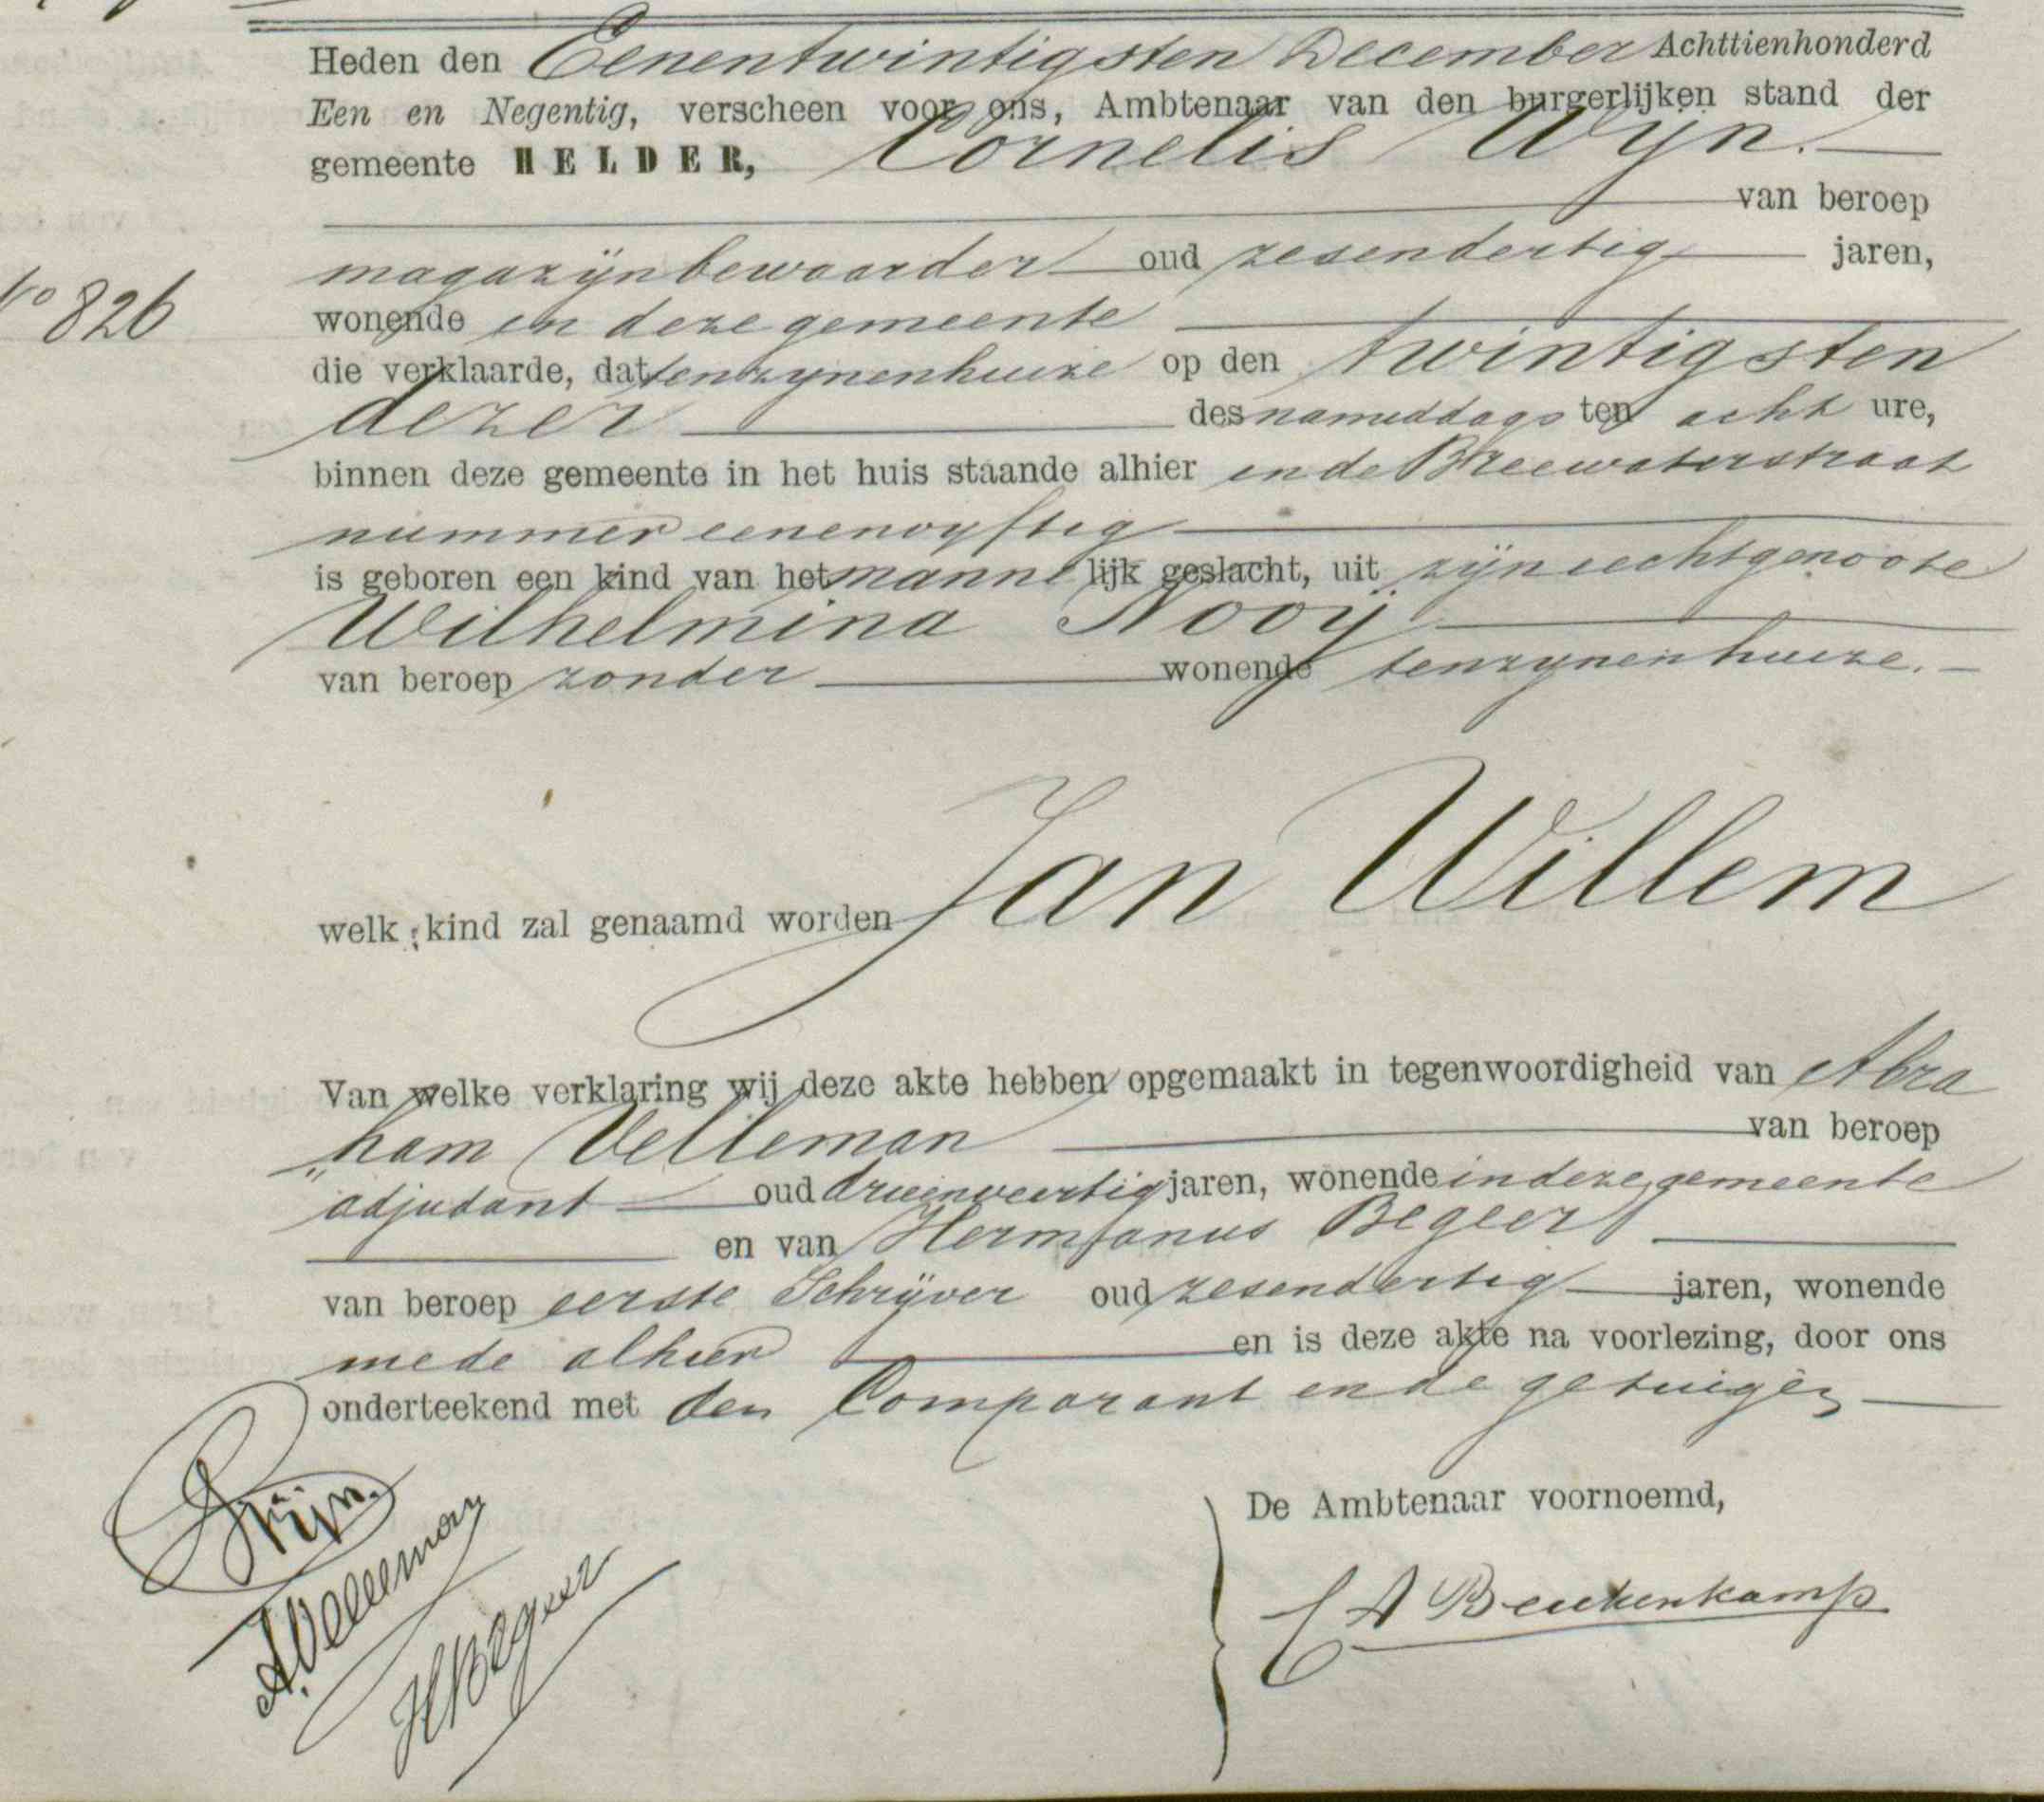 Heden den Eenentwintigsten December Achttienhonderd
Een en Negentig, verscheen voor ons, Ambtenaar van den burgerlijken stand der
gemeente HELDER, Cornelis Wijn.
van beroep
magazijnbewaarder oud zesendertig jaren,
No 826
wonende in deze gemeente
die verklaarde, dat tenzijnenhuize op den twintigsten
dezer des namiddags ten acht ure,
binnen deze gemeente in het huis staande alhier in de Breewaterstraat
nummer eenenvyftig
is geboren een kind van het mannelijk geslacht, uit zijn echtgenoote
Wilhelmina Nooij
van beroep zonder wonende tenzijnenhuize.
welk kind zal genaamd worden Jan Willem
Van welke verklaring wij deze akte hebben opgemaakt in tegenwoordigheid van Abra
ham Velleman van beroep
adjudant oud drieenveertig jaren, wonende in deze gemeente
en van Hermanus Begeer
van beroep eerste Schrijver oud zesendertig jaren, wonende
mede alhier en is deze akte na voorlezing, door ons
onderteekend met den Comparant en de getuigen
De Ambtenaar voornoemd,
Wijn.
A. Velleman
H Begeer